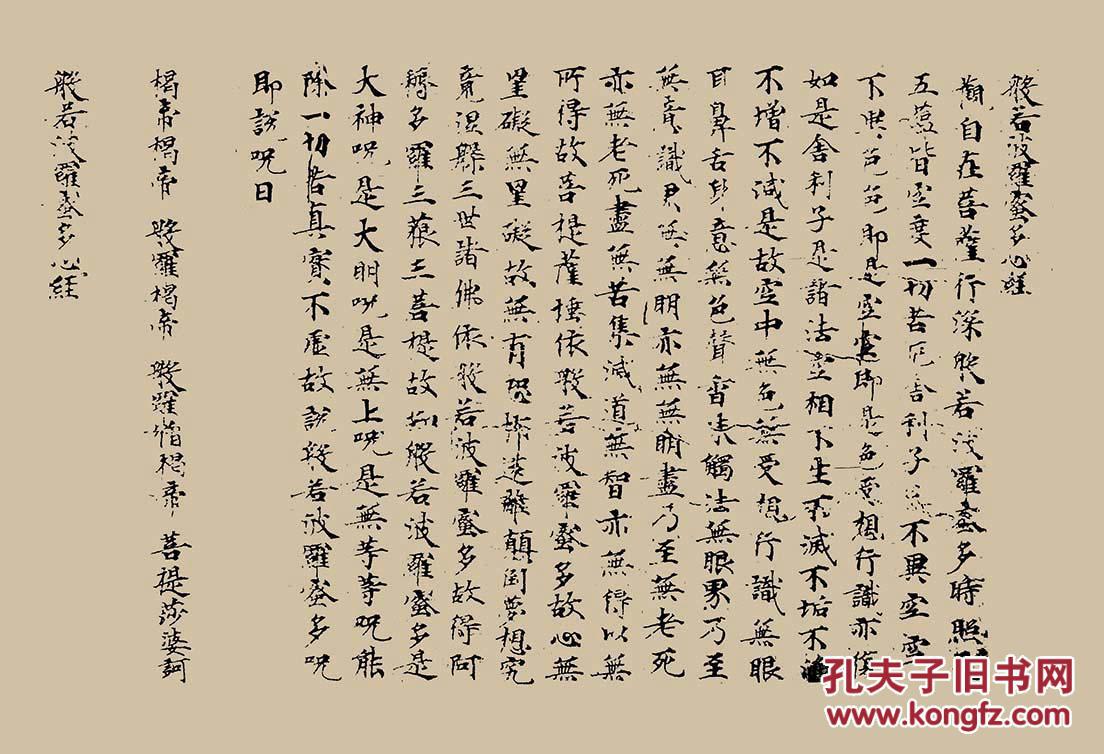 般若波羅蜜多心經
觀自在菩薩行深般若波羅蜜多時照見
五蘊皆空度一切苦厄舍利子色不異空空
不異色色即是空空即是色受想行識亦復
如是舍利子是諸法空相不生不滅不垢不淨
不增不減是故空中無色無受想行識無眼
耳鼻舌身意無色聲香味觸法無眼界乃至
無意識界無無明亦無無明盡乃至無老死
亦無老死盡無苦集滅道無智亦無得以無
所得故菩提薩埵依般若波羅蜜多故心無
罣礙無罣礙故無有恐怖遠離顛倒夢想究
竟涅槃三世諸佛依般若波羅蜜多故得阿
耨多羅三藐三菩提故知般若波羅蜜多是
大神咒是大明咒是無上咒是無等等咒能
除一切苦真實不虛故說般若波羅蜜多咒
即說咒曰
揭帝揭帝 般羅揭帝 般羅僧揭帝 菩提莎婆訶
般若波羅蜜多心經
孔夫子旧书网
www.kongfz.com